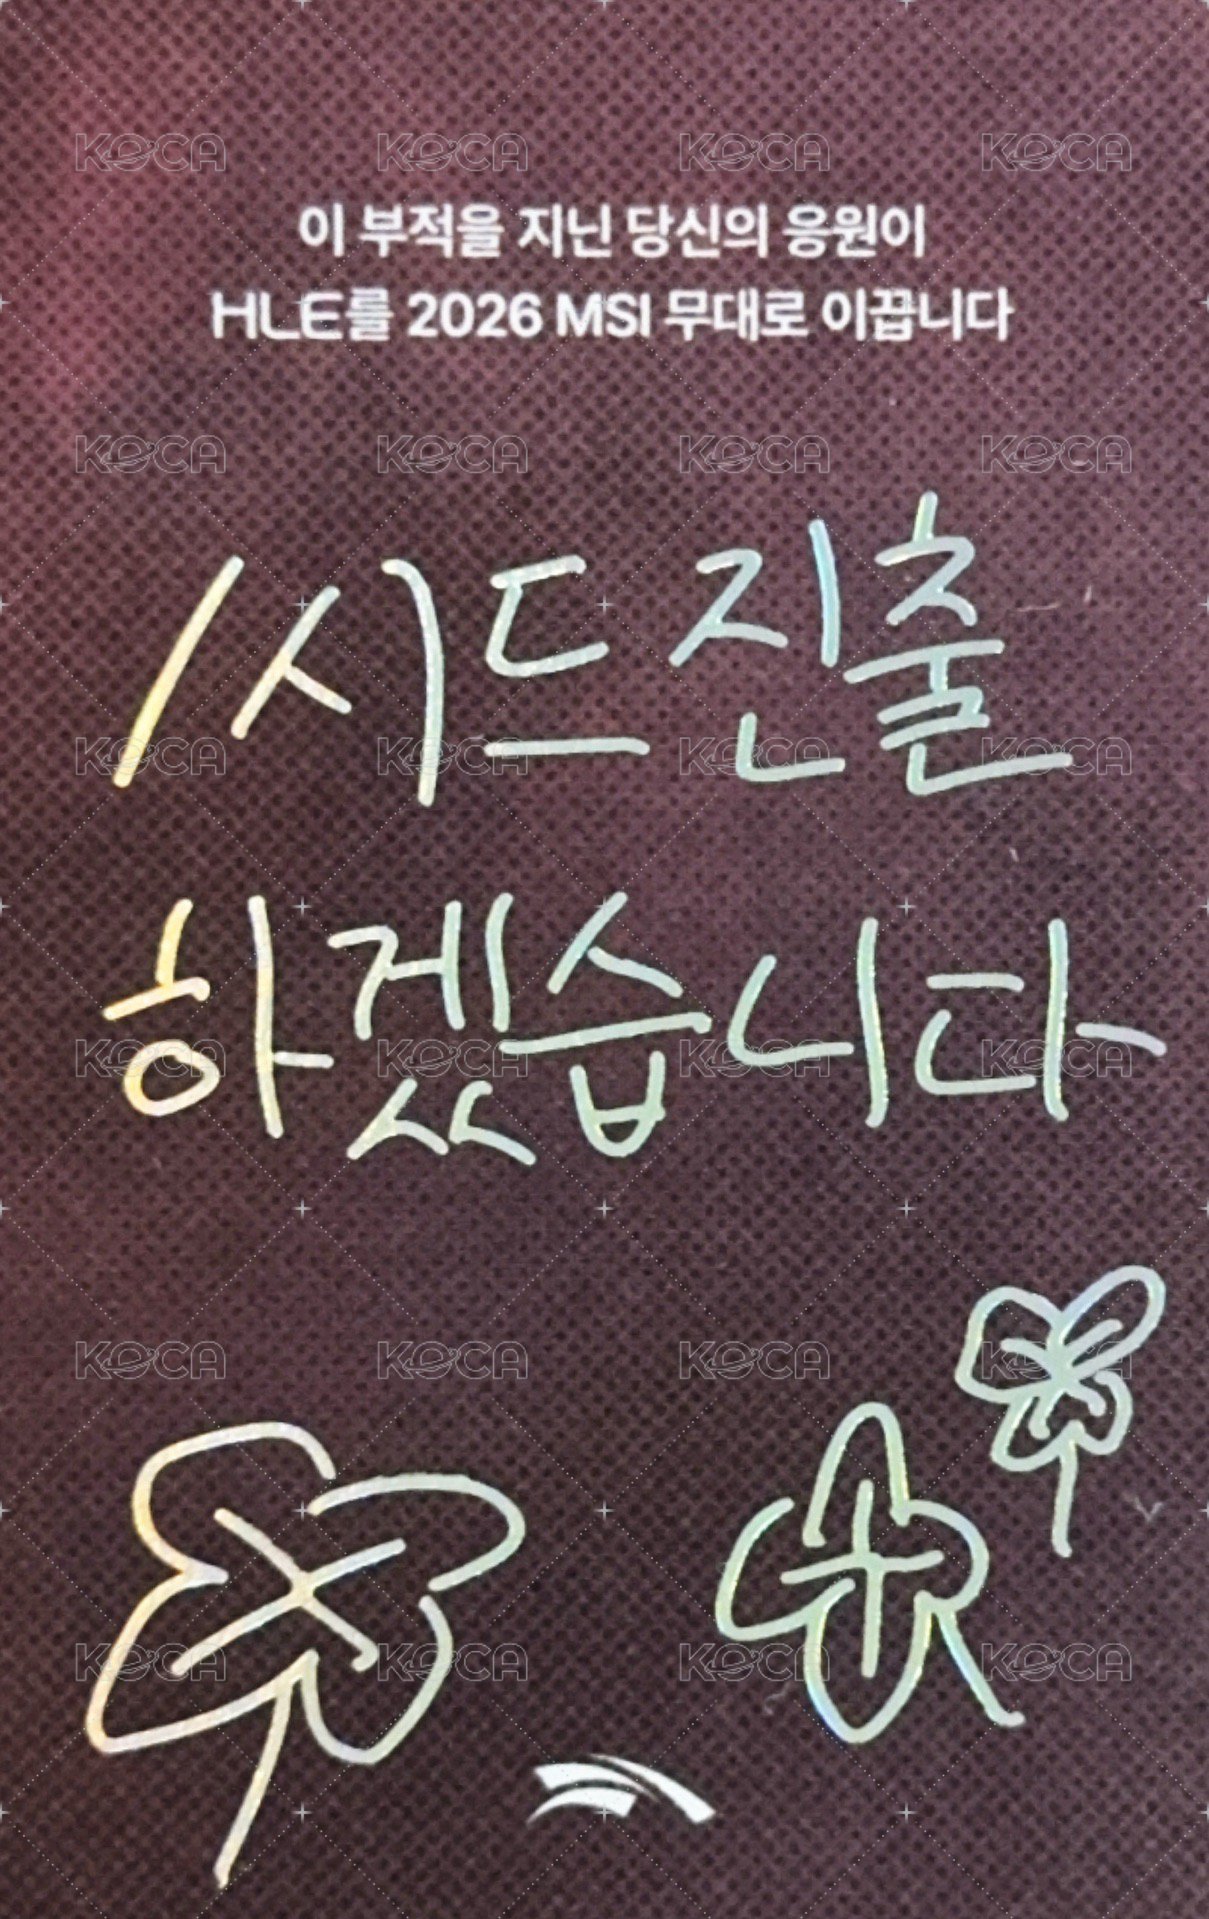 이 부적을 지닌 당신의 응원이
HLE를 2026 MSI 무대로 이끕니다
1시드 진출
하겠습니다
KOCA KOCA KOCA KOCA
KOCA KOCA KOCA KOCA
KOCA KOCA KOCA KOCA
KOCA KOCA KOCA KOCA
KOCA KOCA KOCA KOCA
KOCA KOCA KOCA KOCA